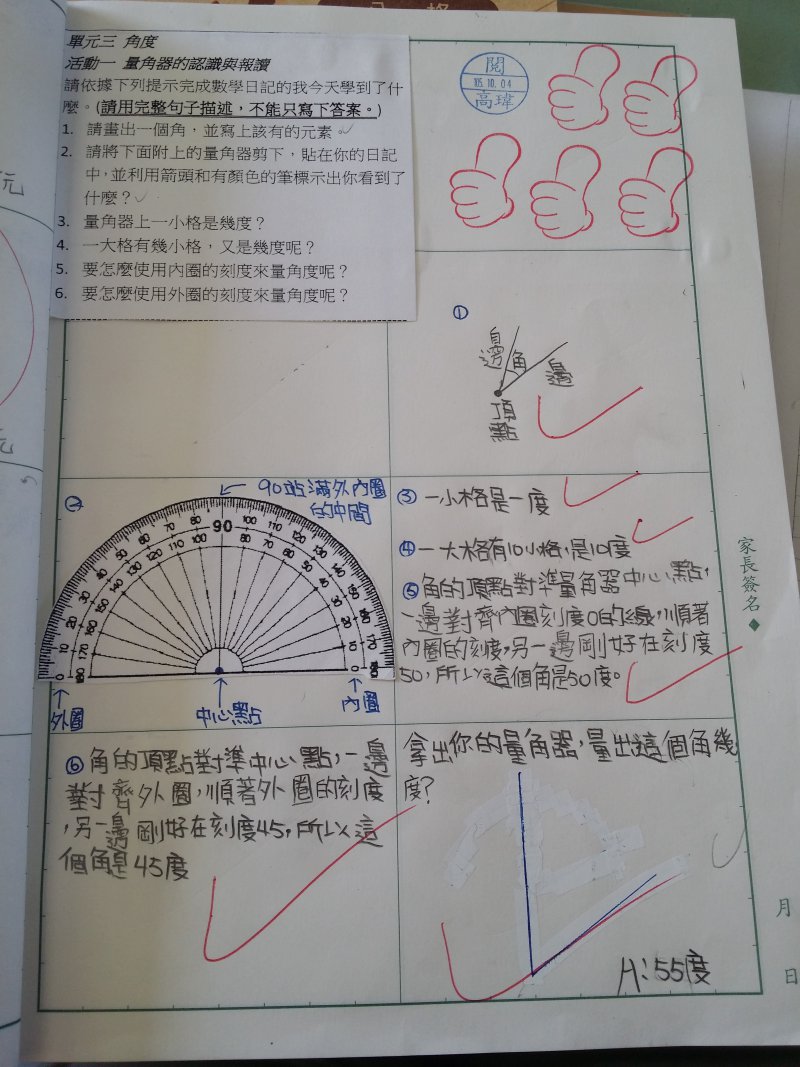 單元三 角度
活動一 量角器的認識與報讀
請依據下列提示完成數學日記的我今天學到了什
麼。(請用完整句子描述,不能只寫下答案。)
1. 請畫出一個角,並寫上該有的元素。
2. 請將下面附上的量角器剪下,貼在你的日記
中,並利用箭頭和有顏色的筆標示出你看到了
什麼?
3. 量角器上一小格是幾度?
4. 一大格有幾小格,又是幾度呢?
5. 要怎麼使用內圈的刻度來量角度呢?
6. 要怎麼使用外圈的刻度來量角度呢?
閱
105.10.04
高瑋
①
邊 角 邊
頂點
②
90站滿外內圈
的中間
90
外圈
中心點
內圈
③ 一小格是一度
④ 一大格有10小格,是10度
⑤ 角的頂點對準量角器中心點,
一邊對齊內圈刻度0的線,順著
內圈的刻度,另一邊剛好在刻度
50,所以這個角是50度。
⑥ 角的頂點對準中心點,一邊
對齊外圈,順著外圈的刻度
,另一邊剛好在刻度45,所以這
個角是45度
拿出你的量角器,量出這個角幾
度?
A:55度
家長簽名◆
月
日